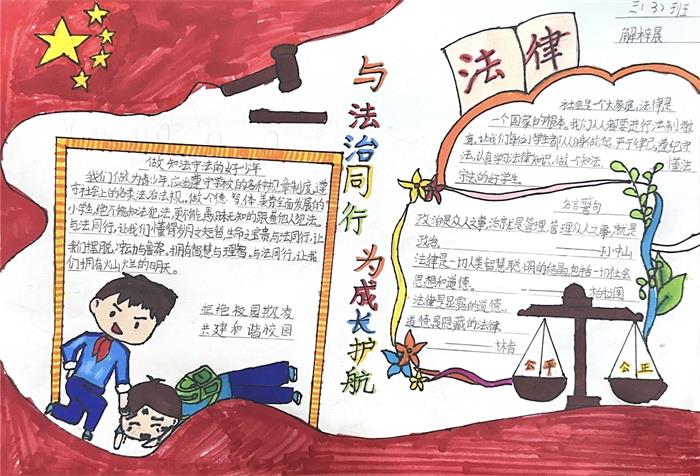 三(3)班
解梓晨
与法治同行 为成长护航
法律
做知法守法的好少年
我们做为青少年,应当遵守学校的各种规章制度,遵
守社会上的各类法治法规。做个德、智、体、美、劳全面发展的
小学生,他方能知法犯法,更不能愚昧无知的跟着他人犯法。
与法同行,让我们懂得岁月之短暂,生命之宝贵与法同行,让
我们摆脱冲动与
拥有智慧与理智。与法同行,让我
们拥有火山烂的明天。
拒绝校园欺凌
共建和谐校园
社会是一个大家庭,法律是
一个国家的根本。我们人人都要进行法制教
育,让我们每位小学生都从自身做起,严于律己,遵纪守
法,认真学习法律知识,做一个知法、懂法
守法的好学生。
名言警句
政治是众人之事,治就是管理,管理众人之事,就是
政治 ——孙中山
法律是一切人类智慧聪明的结晶,包括一切社会
思想和道德。——柏拉图
法律是显露的道德。
道德是隐藏的法律
——林肯
公平
公正